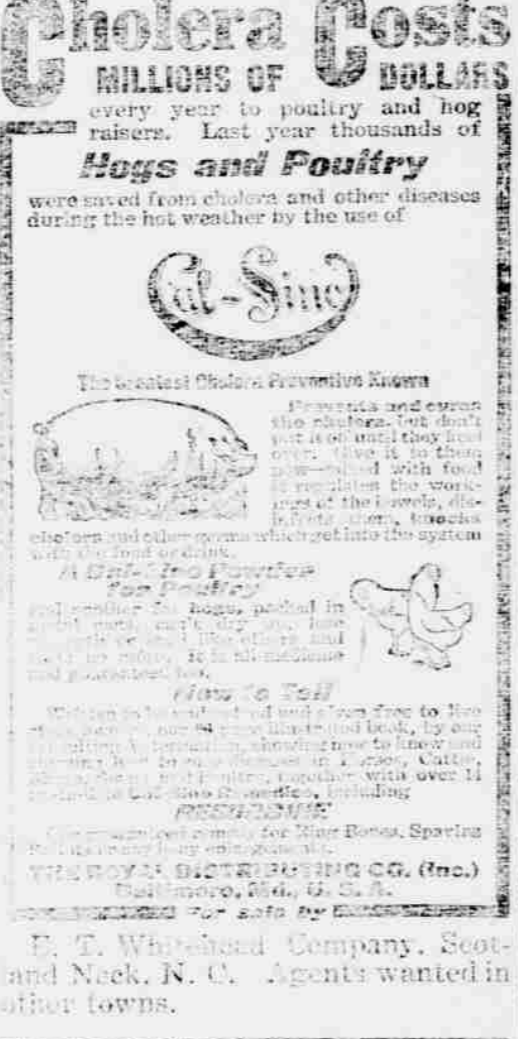 Cholera Costs
MILLIONS OF DOLLARS
every year to poultry and hog
raisers. Last year thousands of
Hogs and Poultry
were saved from cholera and other diseases
during the hot weather by the use of
Cal-Sino
The Greatest Cholera Preventive Known
Prevents and cures
the cholera, but don't
put it off until they keel
over. Give it to them
now—mixed with food
it regulates the work-
ings of the bowels, dis-
infects them, knocks
cholera and other germs which get into the system
with the food or drink.
A Cal-Sino Powder
for Poultry
and another for hogs, packed in
can't dry out, lose
like others and
cost no more. It is all medicine
and guaranteed, too.
How to Tell
and given free to live
our 64 page illustrated book, by our
showing how to know and
how to Horses, Cattle,
and Poultry, together with over 14
Cal-Sino Remedies, including
for Ring Bones, Spavins
or any bony enlargements.
THE ROYAL DISTRIBUTING CO. (Inc.)
Baltimore, Md., U. S. A.
For sale by
E. T. Whitehead Company, Scot-
land Neck, N. C. Agents wanted in
other towns.